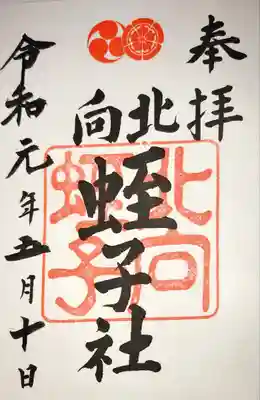 奉拝
北向
蛭子社
令和元年五月十日
北向
蛭子